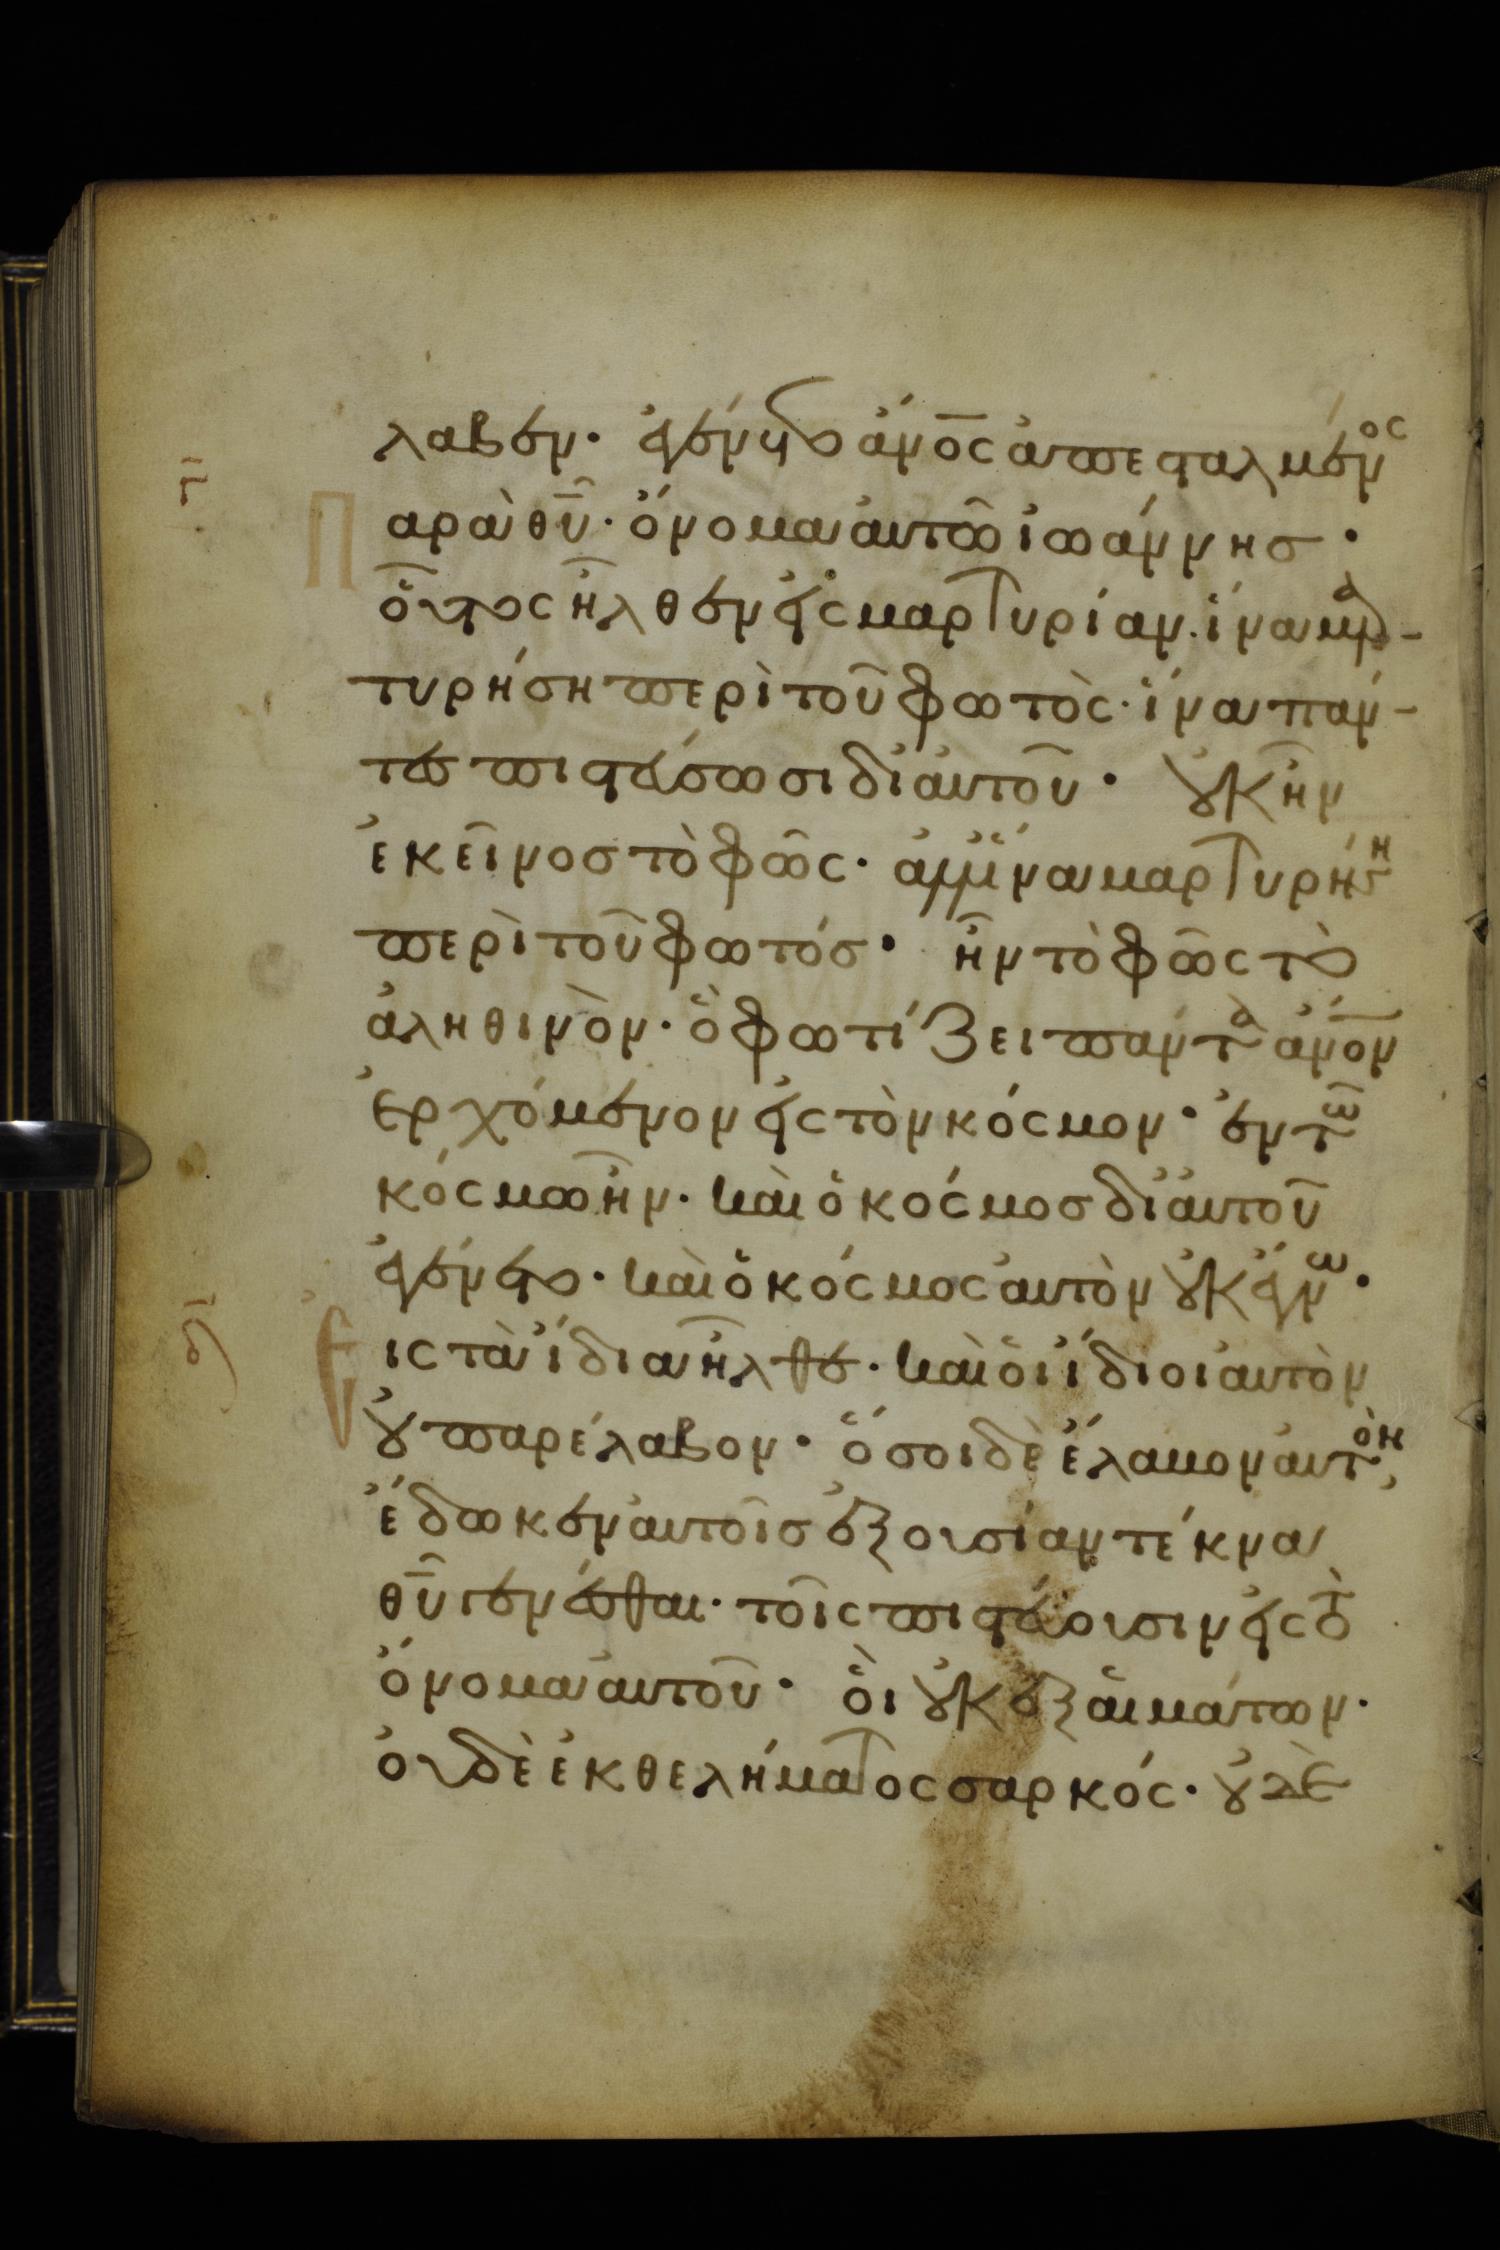 λαβεν· ἐγένετο ἄν̅ο̅ς ἀπεσταλμένος
Παρὰ θ̅υ̅· ὄνομα ἀυτῶ ἰωάννης·
οὗτος ἦλθεν εἰς μαρτυρίαν· ἵνα μαρ-
τυρήση περὶ τοῦ φωτὸς· ἵνα πάν-
τες πιστεύσωσι δι ἀυτοῦ· οὐκ ἦν
ἐκεῖνος τὸ φῶς· ἀλλ ἵνα μαρτυρήση
περὶ τοῦ φωτός· ἦν τὸ φῶς τὸ
ἀληθινὸν· ὃ φωτίζει πάντα ἄν̅ο̅ν
ἐρχόμενον εἰς τὸν κόσμον· ἐν τῶ
κόσμω ἦν· καὶ ὁ κόσμος δι ἀυτοῦ
ἐγένετο· καὶ ὁ κόσμος ἀυτὸν οὐκ ἔγνω·
Εἰς τὰ ἴδια ἦλθε· καὶ ὁι ἴδιοι ἀυτὸν
οὐ παρέλαβον· ὅσοι δὲ ἔλαβον ἀυτὸν,
ἔδωκεν ἀυτοῖς ἐξουσίαν τέκνα
θ̅υ̅ γενέσθαι· τοῖς πιστεύουσιν εἰς τὸ
ὄνομα ἀυτοῦ· ὃι οὐκ ἐξ ἁιμάτων·
ὀυδὲ ἐκ θελήματος σαρκός· οὐδὲ